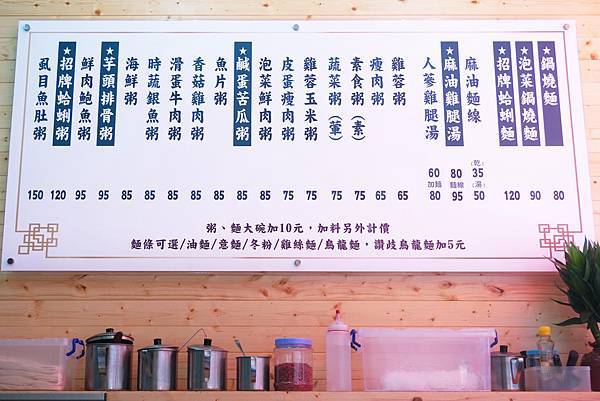 ★鍋燒麵 80
★泡菜鍋燒麵 90
★招牌蛤蜊麵 120
麻油麵線 (乾) 35 (湯) 50
★麻油雞腿湯 80 麵線 95
人蔘雞腿湯 60 加麵 80
雞蓉粥 65
瘦肉粥 65
素食粥(素) 75
蔬菜粥(葷) 75
雞蓉玉米粥 75
皮蛋瘦肉粥 75
泡菜鮮肉粥 85
★鹹蛋苦瓜粥 85
魚片粥 85
香菇雞肉粥 85
滑蛋牛肉粥 85
時蔬銀魚粥 85
海鮮粥 85
★芋頭排骨粥 95
鮮肉鮑魚粥 95
★招牌蛤蜊粥 120
虱目魚肚粥 150
粥、麵大碗加10元，加料另外計價
麵條可選/油麵/意麵/冬粉/雞絲麵/烏龍麵，讚岐烏龍麵加5元